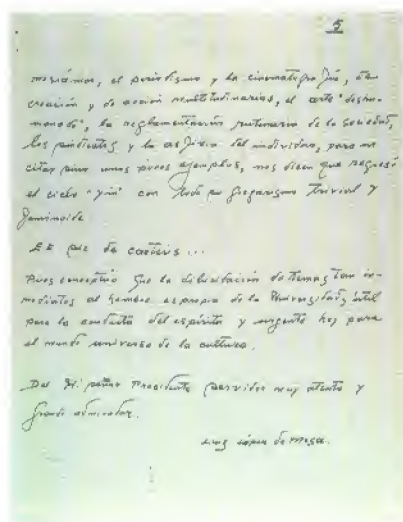 5
el periodismo y la cinematografía,
creación y de acción multitudinarias, el arte "deshu-
manado", la reglamentación rutinaria de la sociedad,
los sindicatos y la asfixia del individuo, para no
citar sino unos pocos ejemplos, nos dicen que regresó
el ciclo "yin" con todo su gregarismo trivial y
feminoide.
Et sic de cœteris...
Pues conceptúo que la dilucidación de temas tan in-
mediatos al hombre es propia de la Universidad, útil
para la conducta del espíritu y urgente hoy para
el mundo universo de la cultura.
Del H. señor Presidente servidor muy atento y
grande admirador.
Luis López de Mesa.